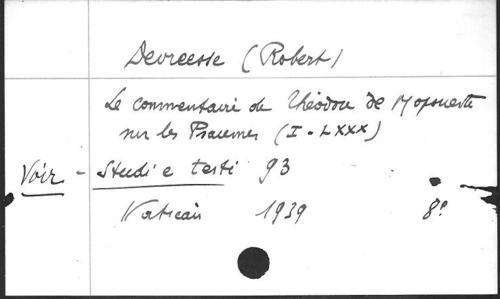 Devreesse (Robert)
Le commentaire de Théodore de Mopsueste
sur les Psaumes (I-LXXX)
Voir - Studi e testi 93
Vatican 1939 8°